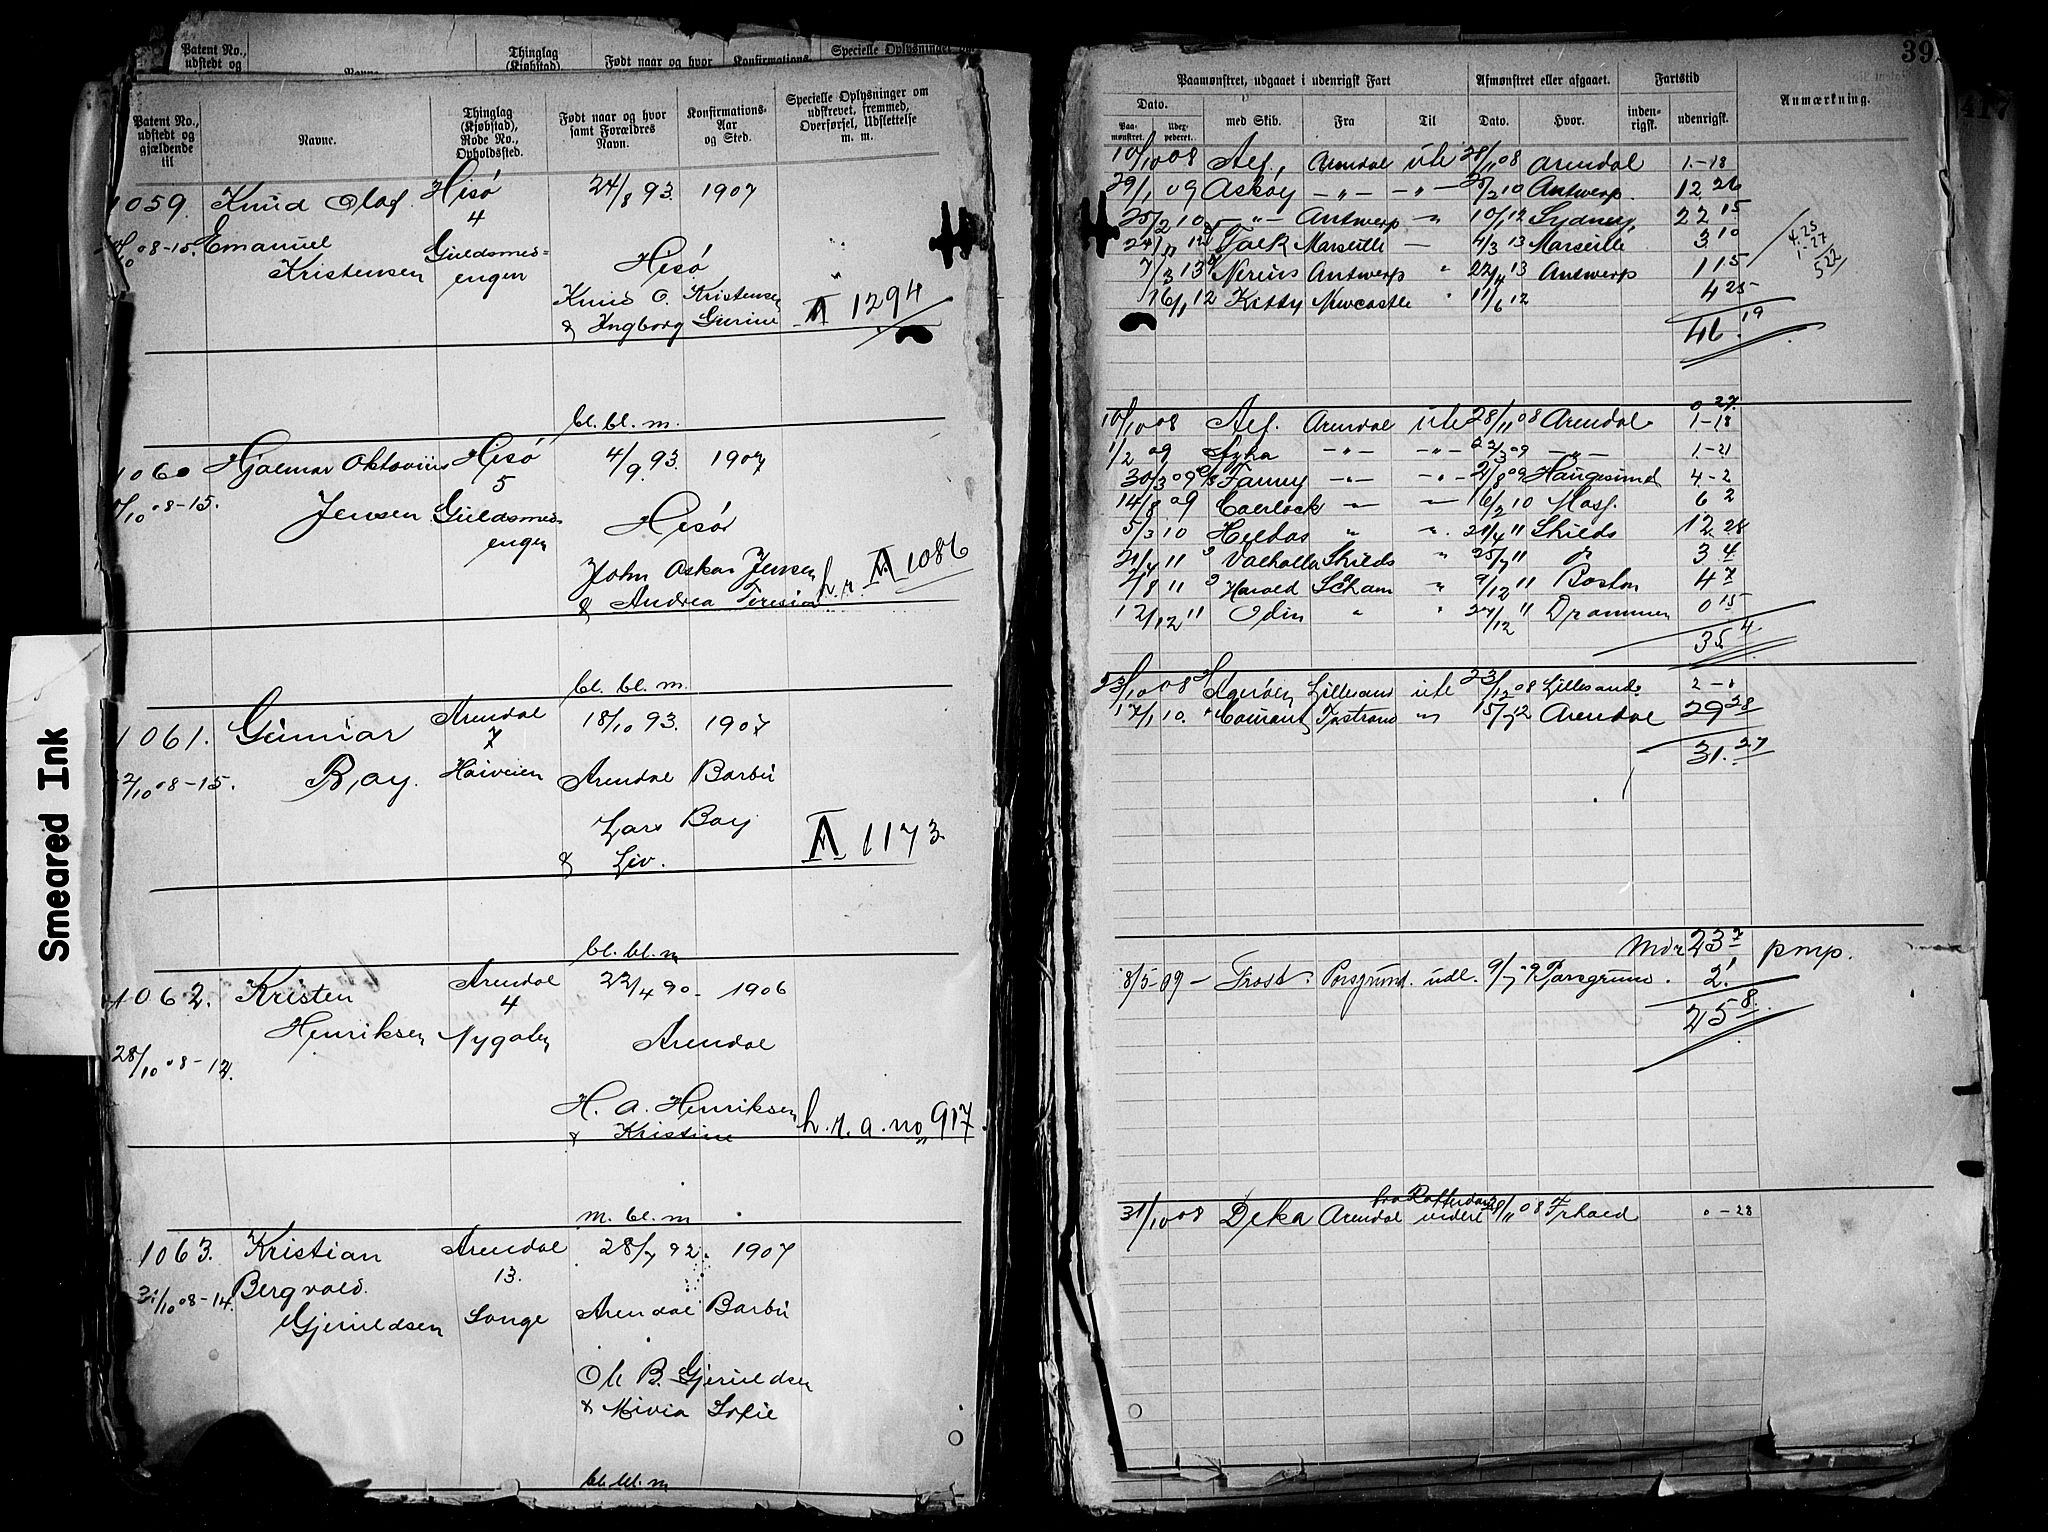 Smeared Ink
Patent No., udstedt og gjældende til
Navne.
Thinglag (Kjøbstad), Rode No., Opholdssted.
Født naar og hvor samt Forældres Navn.
Konfirmations-Aar og Sted.
Specielle Oplysninger om udskrevet, fremmed, Overførsel, Udslettelse m. m.
1059. Knud Olaf Hisø 24/8 93. 1907
4
08-15. Emanuel Guldsmed-
Kristensen engen Hisø "
Knud O. Kristensen
& Ingborg Gurine II 1294
bl. bl. m.
1060 Hjalmar Oktavius Hisø 4/9 93. 1907
5
7/10 08-15. Jensen Guldsmed-
engen Hisø
John Oskar Jensen h.r. II 1086
& Andrea Teresia
bl. bl. m.
1061. Gunnar Arendal 18/10 93. 1907
7
08-15. Bay. Høiveien Arendal Barbu
Lars Bay
& Liv. II 1173
bl. bl. m
1062. Kristen Arendal 22/4 90 - 1906
4
Henriksen Nygaten Arendal
28/10 08-12.
H. A. Henriksen h.r.a. no 917
& Kristine
m. bl. m
1063. Kristian Arendal 28/7 92. 1907
13.
31/10 08-14. Bergvald Songe Arendal Barbu
Gjeruldsen
Ole B. Gjeruldsen
& Mivia Sofie
bl. bl. m
39
417
Paamønstret, udgaaet i udenrigsk Fart
Afmønstret eller afgaaet.
Fartstid
Anmærkning.
Dato.
Paamønstret. Udexpederet. med Skib. Fra Til Dato. Hvor. indenrigsk. udenrigsk.
10/10 08 Alf, Arendal ute 28/11 08 Arendal 1-18
29/1 09 Askøy -"- -"- 25/2 10 Antwerp. 12 26
25/2 10 -"- Antwerp " 10/1 12 Sydney, 22 15
12 Falk Marseille - 4/3 13 Marseille 3 10
7/3 13 Nerius Antwerp " 22/4 13 Antwerp 1 15
16/1 12 Kitty Newcastle " 11/6 12 4 25
46.19
4.25
1.27
522
0 27
10/10 08 Alf. Arendal ute 28/11 08 Arendal 1-18
1/2 09 -"- -"- 22/3 09 -"- 1-21
30/3 09 Fanny -"- -"- 2/8 09 Haugesund 4-2
14/8 09 Caerlock -"- -"- 16/2 10 6 2
5/3 10 " " 21/4 11 Shilds 12 28
21/4 11 Valhalla Shilds " 25/7 11 3 4
2/8 11 Harald " 9/12 11 Boston 4 7
12/12 11 Odin " " 27/12 11 Drammen 0 15
35 4
23/10 08 Agerøen Lillesand ute 23/12 08 Lillesand 2-0
17/1 10. " " 15/7 12 Arendal 29 28
31.27
Mdr 23 7 pmp.
8/5-09- Frost. Porsgrund. udl. 9/7-9 Porsgrund. 2.1
25 8
31/10 08 Deka Arendal fra Rotterdam videre 28/11 08 0-28